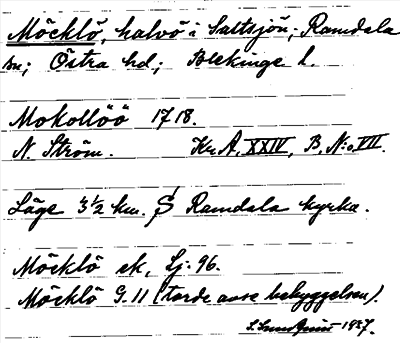 Möcklö, halvö i Saltsjön; Ramdala
sn; Östra hd; Blekinge l.
Mokollöö 1718.
N. Ström. Kr. A, XXIV, B, N:o VII.
Läge 3½ km. S Ramdala kyrka.
Möcklö ek, Lj. 96.
Möcklö G. 11 (torde avse bebyggelsen).
1937.